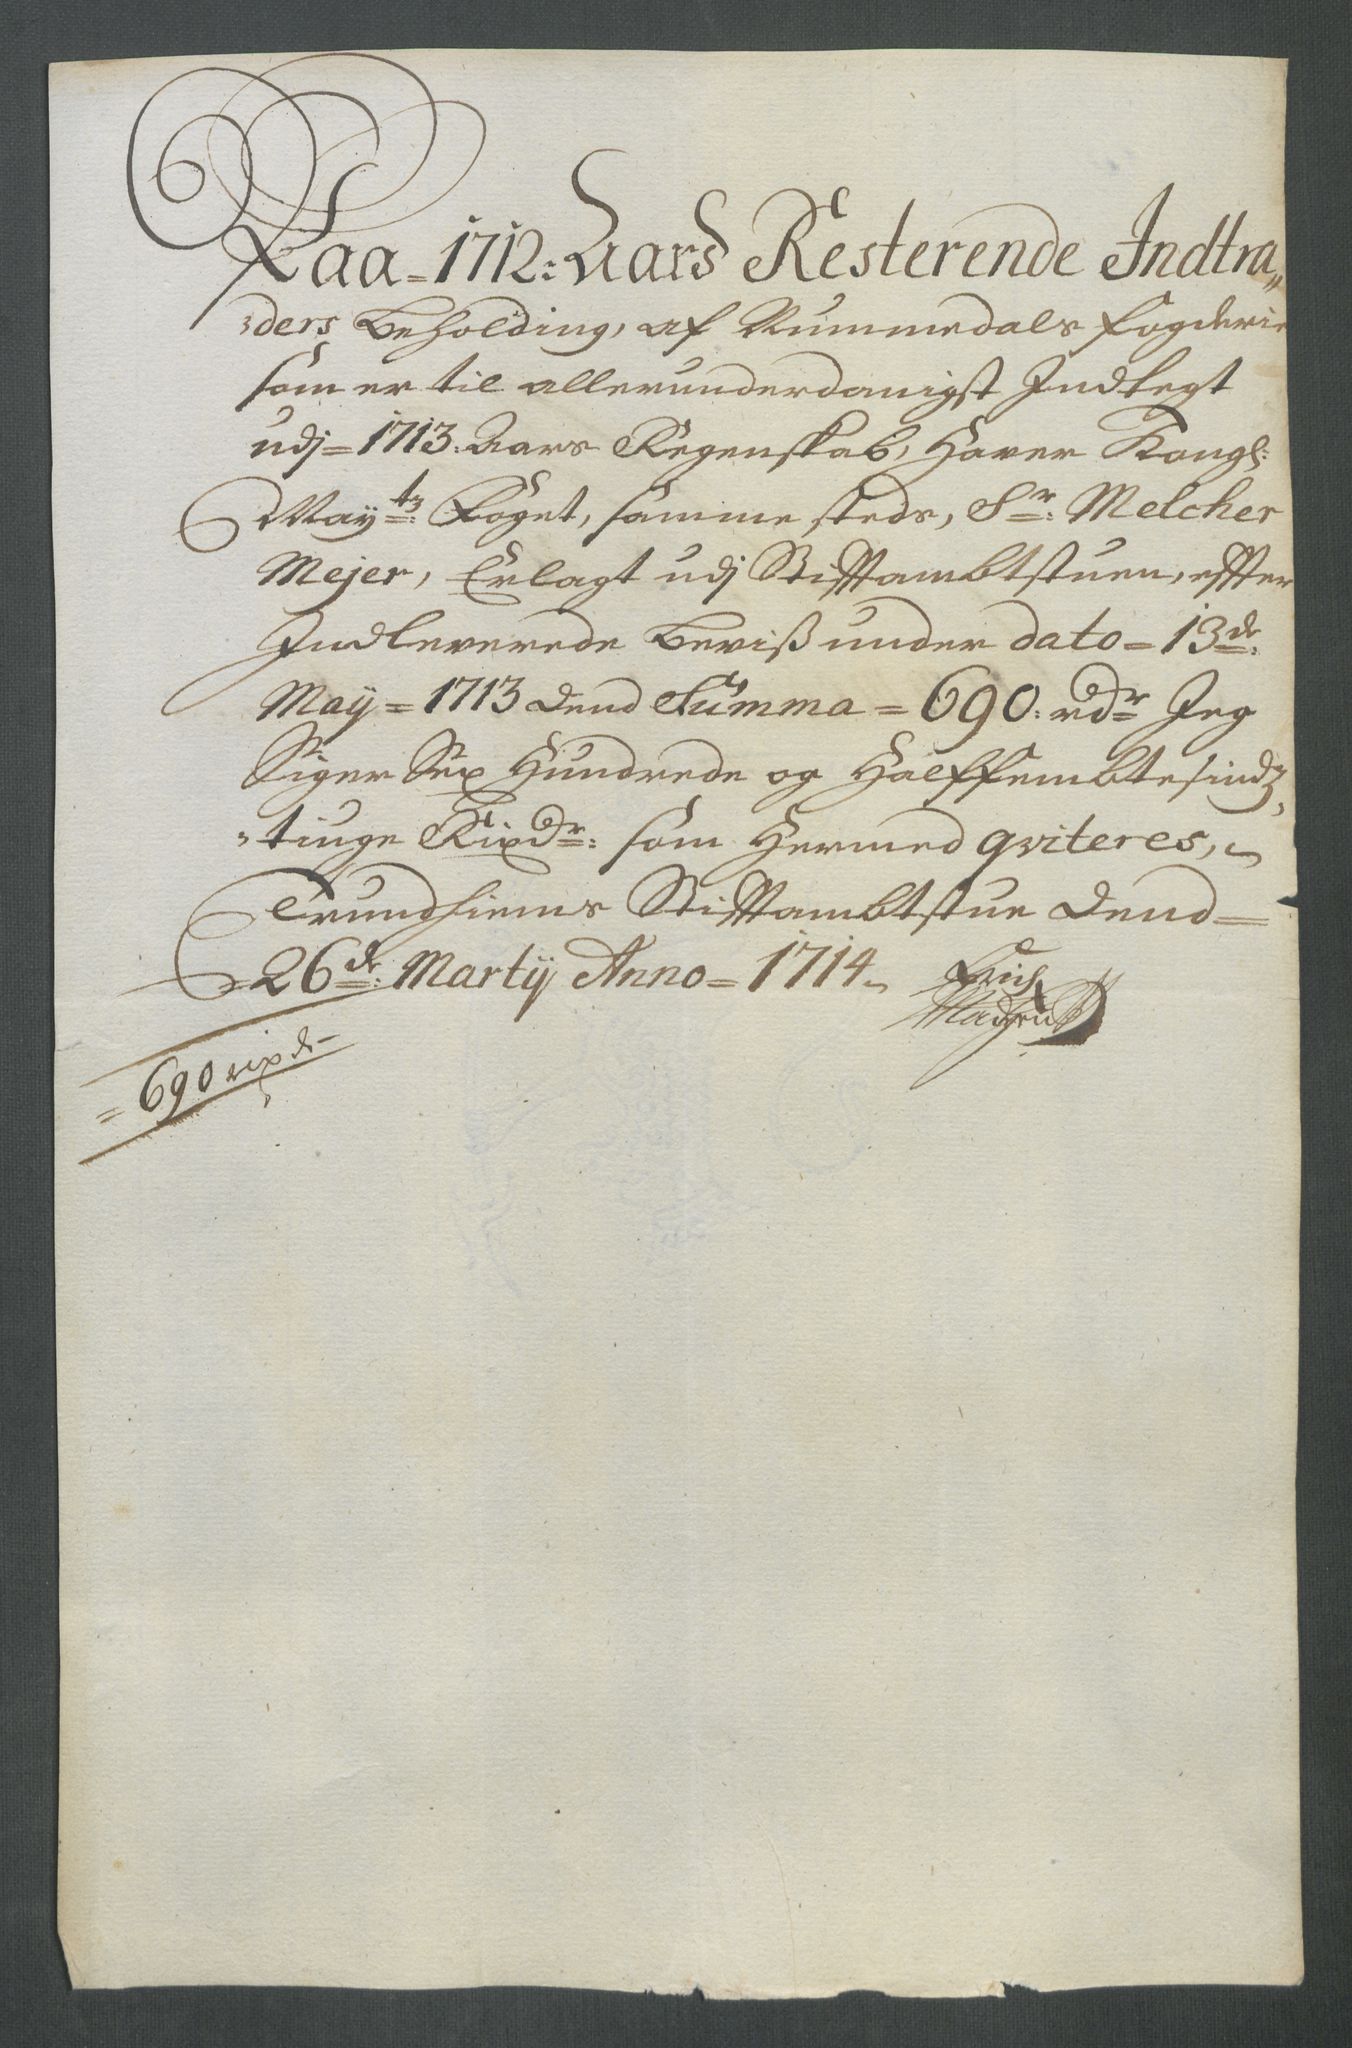 Paa=1712: Aars Resterende Indtra„
„ders beholding, af Nummedals fogderie
som er til allerunderdanigst Indlegt
udj=1713: Aars Regenskab, Haver Kongl:
Mayᵗᶻ: Foget, samme steds, Sʳ: Melcher
Mejer, Erlagt udj Stifftambtstuen, effter
Indleverede beviß under dato=13ᵈᵉ:
Maÿ=1713 dend Summa=690: rdʳ Jeg
Siger Sex Hundrede og Halffembtesindz,
„tiuge Rixdʳ: som Hermed qviteres,
Trundhiems Stifftambtstue dend=
26ᵈᵉ: Martij Anno=1714
Erich
=690 rixdr